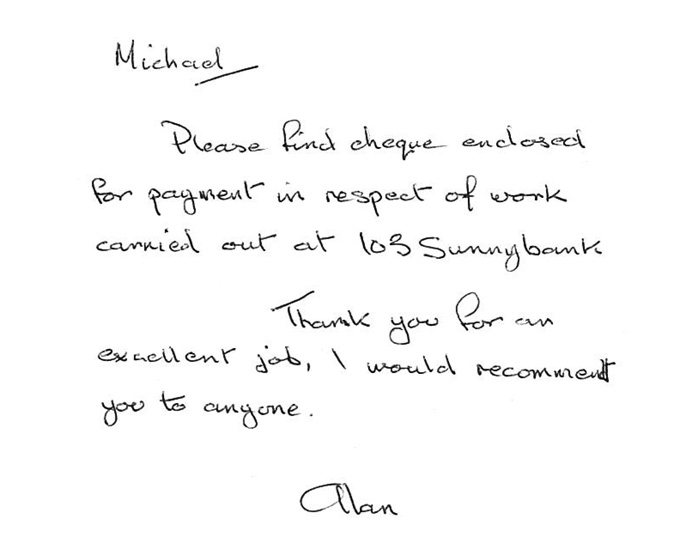 Michael
Please find cheque enclosed
for payment in respect of work
carried out at 103 Sunnybank
Thank you for an
excellent job, I would recommend
you to anyone.
Alan